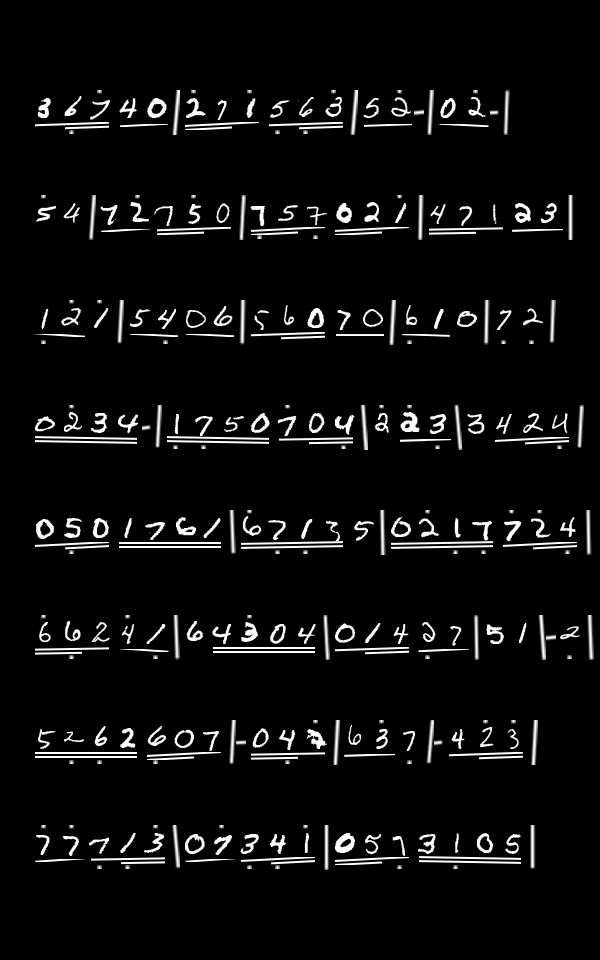 36740|271563|52-|02-|
54|72750|757021|47123|
121|5406|56070|610|72|
0234-|1750704|223|3424|
0501761|67135|0217724|
66241|64304|01427|51|-2|
5262607|-042|637|-423|
77713|07341|0573105|